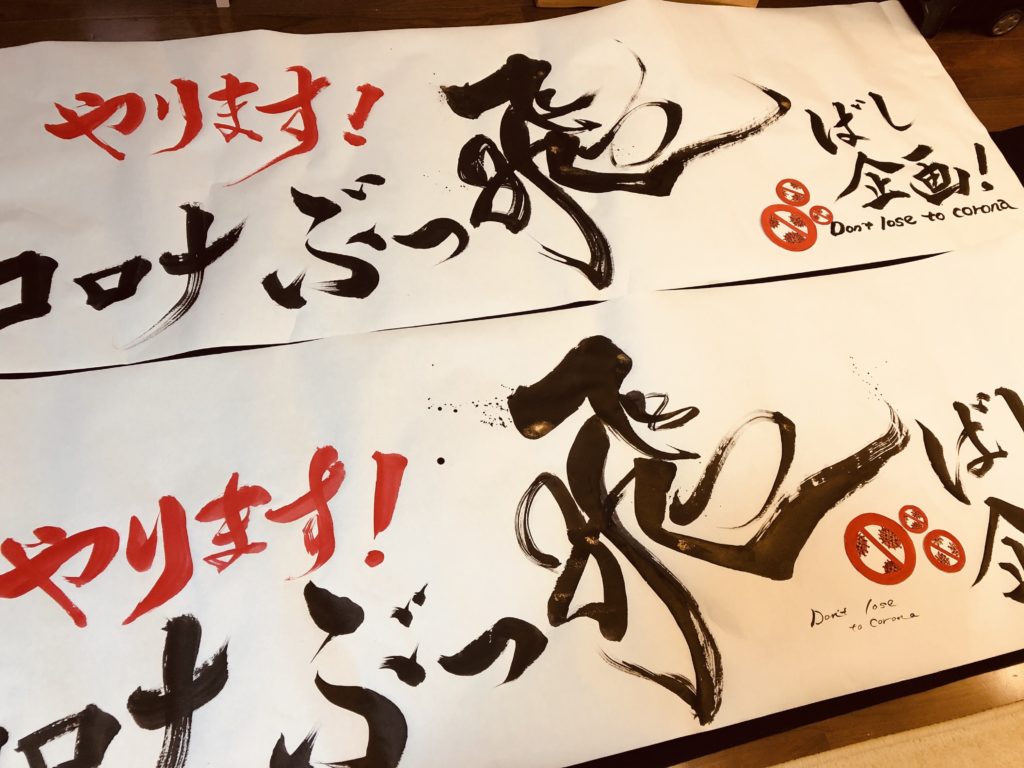 やります!
コロナぶっ飛ばし
企画!
Don't lose to corona
やります!
コロナぶっ飛ばし
企
Don't lose
to corona